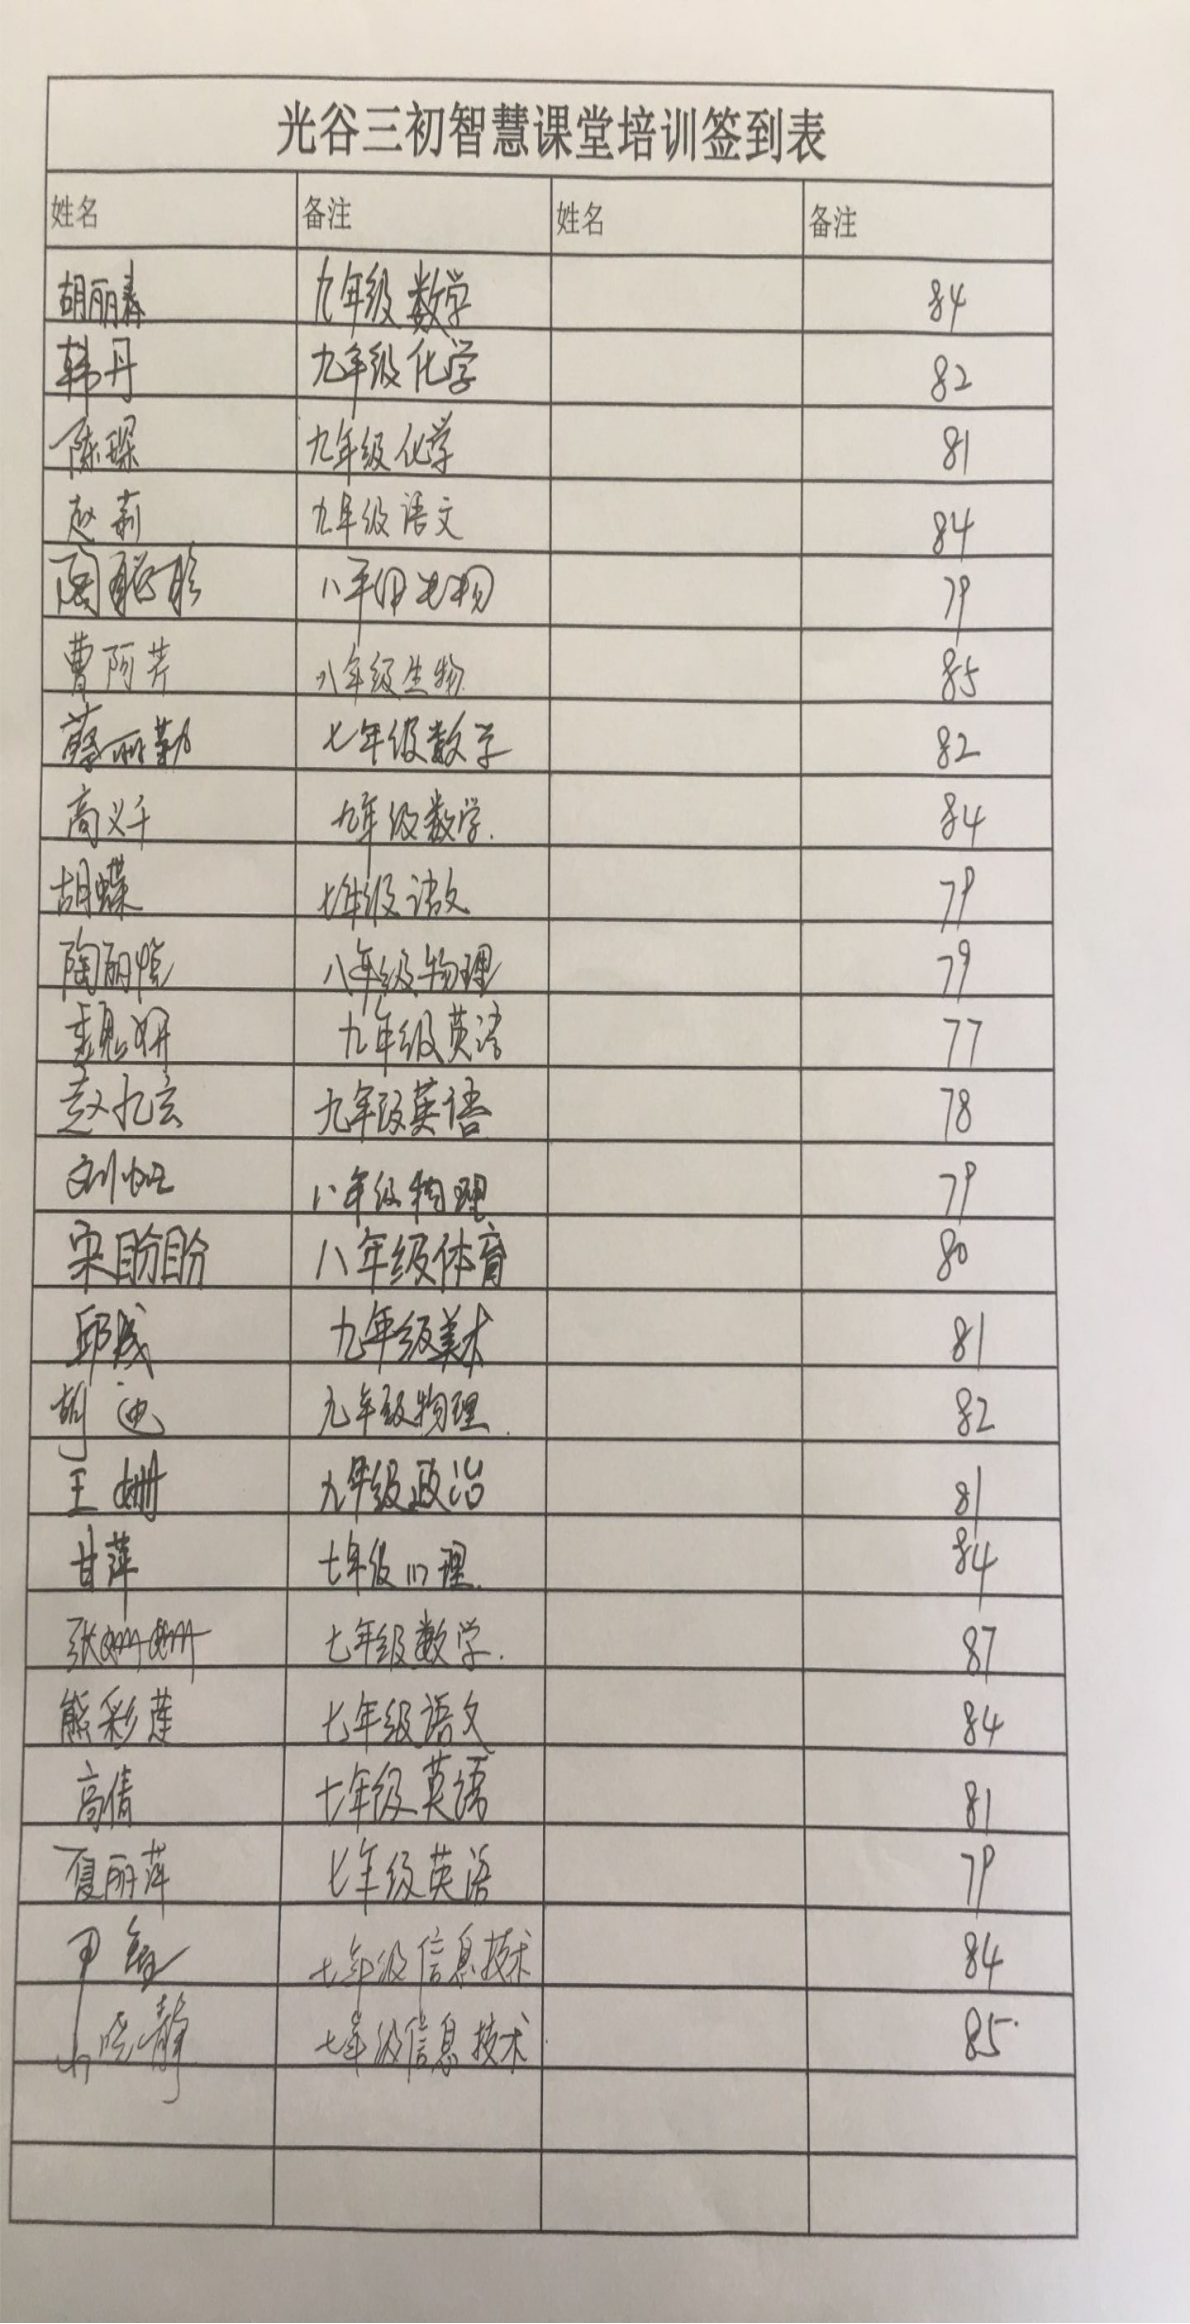 光谷三初智慧课堂培训签到表
姓名 备注 姓名 备注
胡丽春 九年级数学 84
韩丹 九年级化学 82
陈琛 九年级化学 81
赵莉 九年级语文 84
陶 八年级生物 79
曹阿芹 八年级生物 85
蔡丽勤 七年级数学 82
高义千 九年级数学. 84
胡蝶 七年级语文 79
陶丽 八年级物理 79
九年级英语 77
赵九玄 九年级英语 78
刘 八年级物理 79
宋盼盼 八年级体育 80
邱成 九年级美术 81
胡迪 九年级物理. 82
王姗 九年级政治 81
甘萍 七年级心理. 84
张姗姗 七年级数学. 87
熊彩莲 七年级语文 84
高倩 七年级英语 81
夏丽萍 七年级英语 79
尹 七年级信息技术 84
晓静 七年级信息技术 85